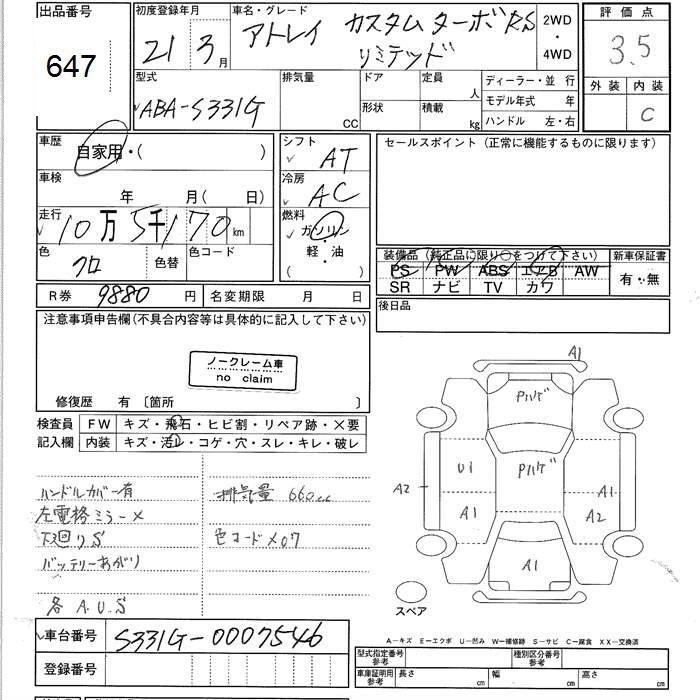 出品番号
647
初度登録年月
21 3月
車名・グレード
アトレイ カスタムターボRS
リミテッド
2WD
・
4WD
評価点
3.5
外装 内装
C
型式
ABA-S331G
排気量
CC
ドア
形状
定員
人
積載
kg
ディーラー・並 行
モデル年式 年
ハンドル 左・右
車歴
自家用・( )
車検
年 月 ( 日)
走行
10万5千170km
色
クロ
色替
色コード
シフト
AT
冷房
AC
燃料
ガソリン
軽・油
( )
セールスポイント (正常に機能するものに限ります)
装備品 (純正品に限り○をつけて下さい)
PS PW ABS エアB AW
SR ナビ TV カワ
新車保証書
有・無
R券 9880円
名変期限 月 日
後日品
注意事項申告欄(不具合内容等は具体的に記入して下さい)
ノークレーム車
no claim
修復歴 有 〔箇所 〕
検査員
記入欄
FW キズ・飛石・ヒビ割・リペア跡・×要
内装 キズ・汚レ・コゲ・穴・スレ・キレ・破レ
ハンドルカバー有
左電格ミラー×
下廻りS
バッテリーあがり
各A.U.S
排気量 660cc
色コードX07
A1
Pハゲ
U1
Pハゲ
A2
A1
A1
A2
A1
スペア
A-キズ E-エクボ U-凹み W-補修跡 S-サビ C-腐食 XX-交換済
車台番号 S331G-0007546
登録番号
型式指定番号
参考
種別区分番号
参考
車庫証明用
参考
長さ cm
幅 cm
高さ cm